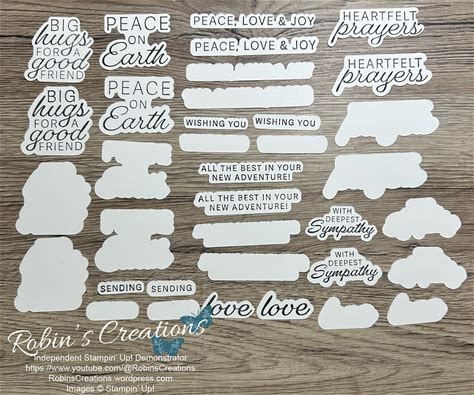 BIG
hugs
FOR A
good
FRIEND
PEACE
ON
Earth
PEACE, LOVE & JOY
HEARTFELT
prayers
PEACE, LOVE & JOY
BIG
hugs
FOR A
good
FRIEND
PEACE
ON
Earth
HEARTFELT
prayers
WISHING YOU
WISHING YOU
ALL THE BEST IN YOUR
NEW ADVENTURE!
ALL THE BEST IN YOUR
NEW ADVENTURE!
WITH
DEEPEST
Sympathy
WITH
DEEPEST
Sympathy
SENDING
SENDING
love love
Robin's Creations
Independent Stampin' Up! Demonstrator
https://www.youtube.com/@RobinsCreations
RobinsCreations.wordpress.com
Images © Stampin' Up!